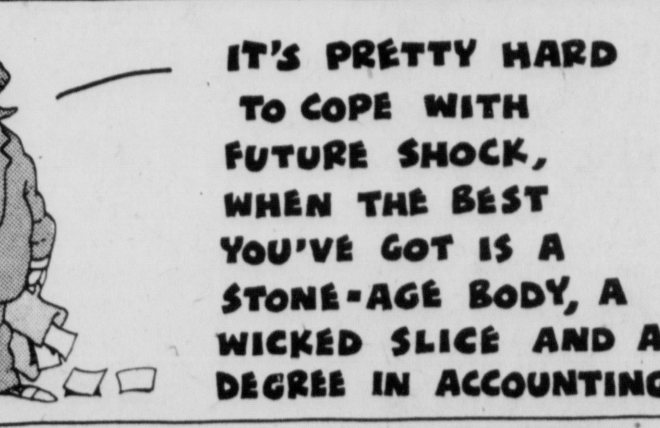 IT'S PRETTY HARD
TO COPE WITH
FUTURE SHOCK,
WHEN THE BEST
YOU'VE GOT IS A
STONE-AGE BODY, A
WICKED SLICE AND A
DEGREE IN ACCOUNTING